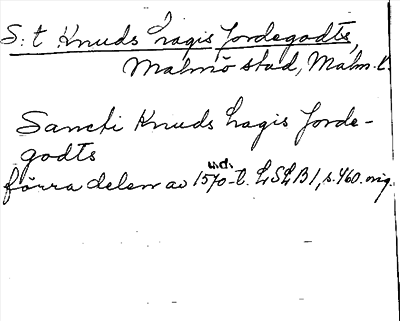 S:t Knuds Lagis Jordegodts,
Malmö stad, Malm. l.
Sancti Knuds Lagis Jorde-
godts
u.d.
förra delen av 1570-t. LSLB1, s. 460. orig.